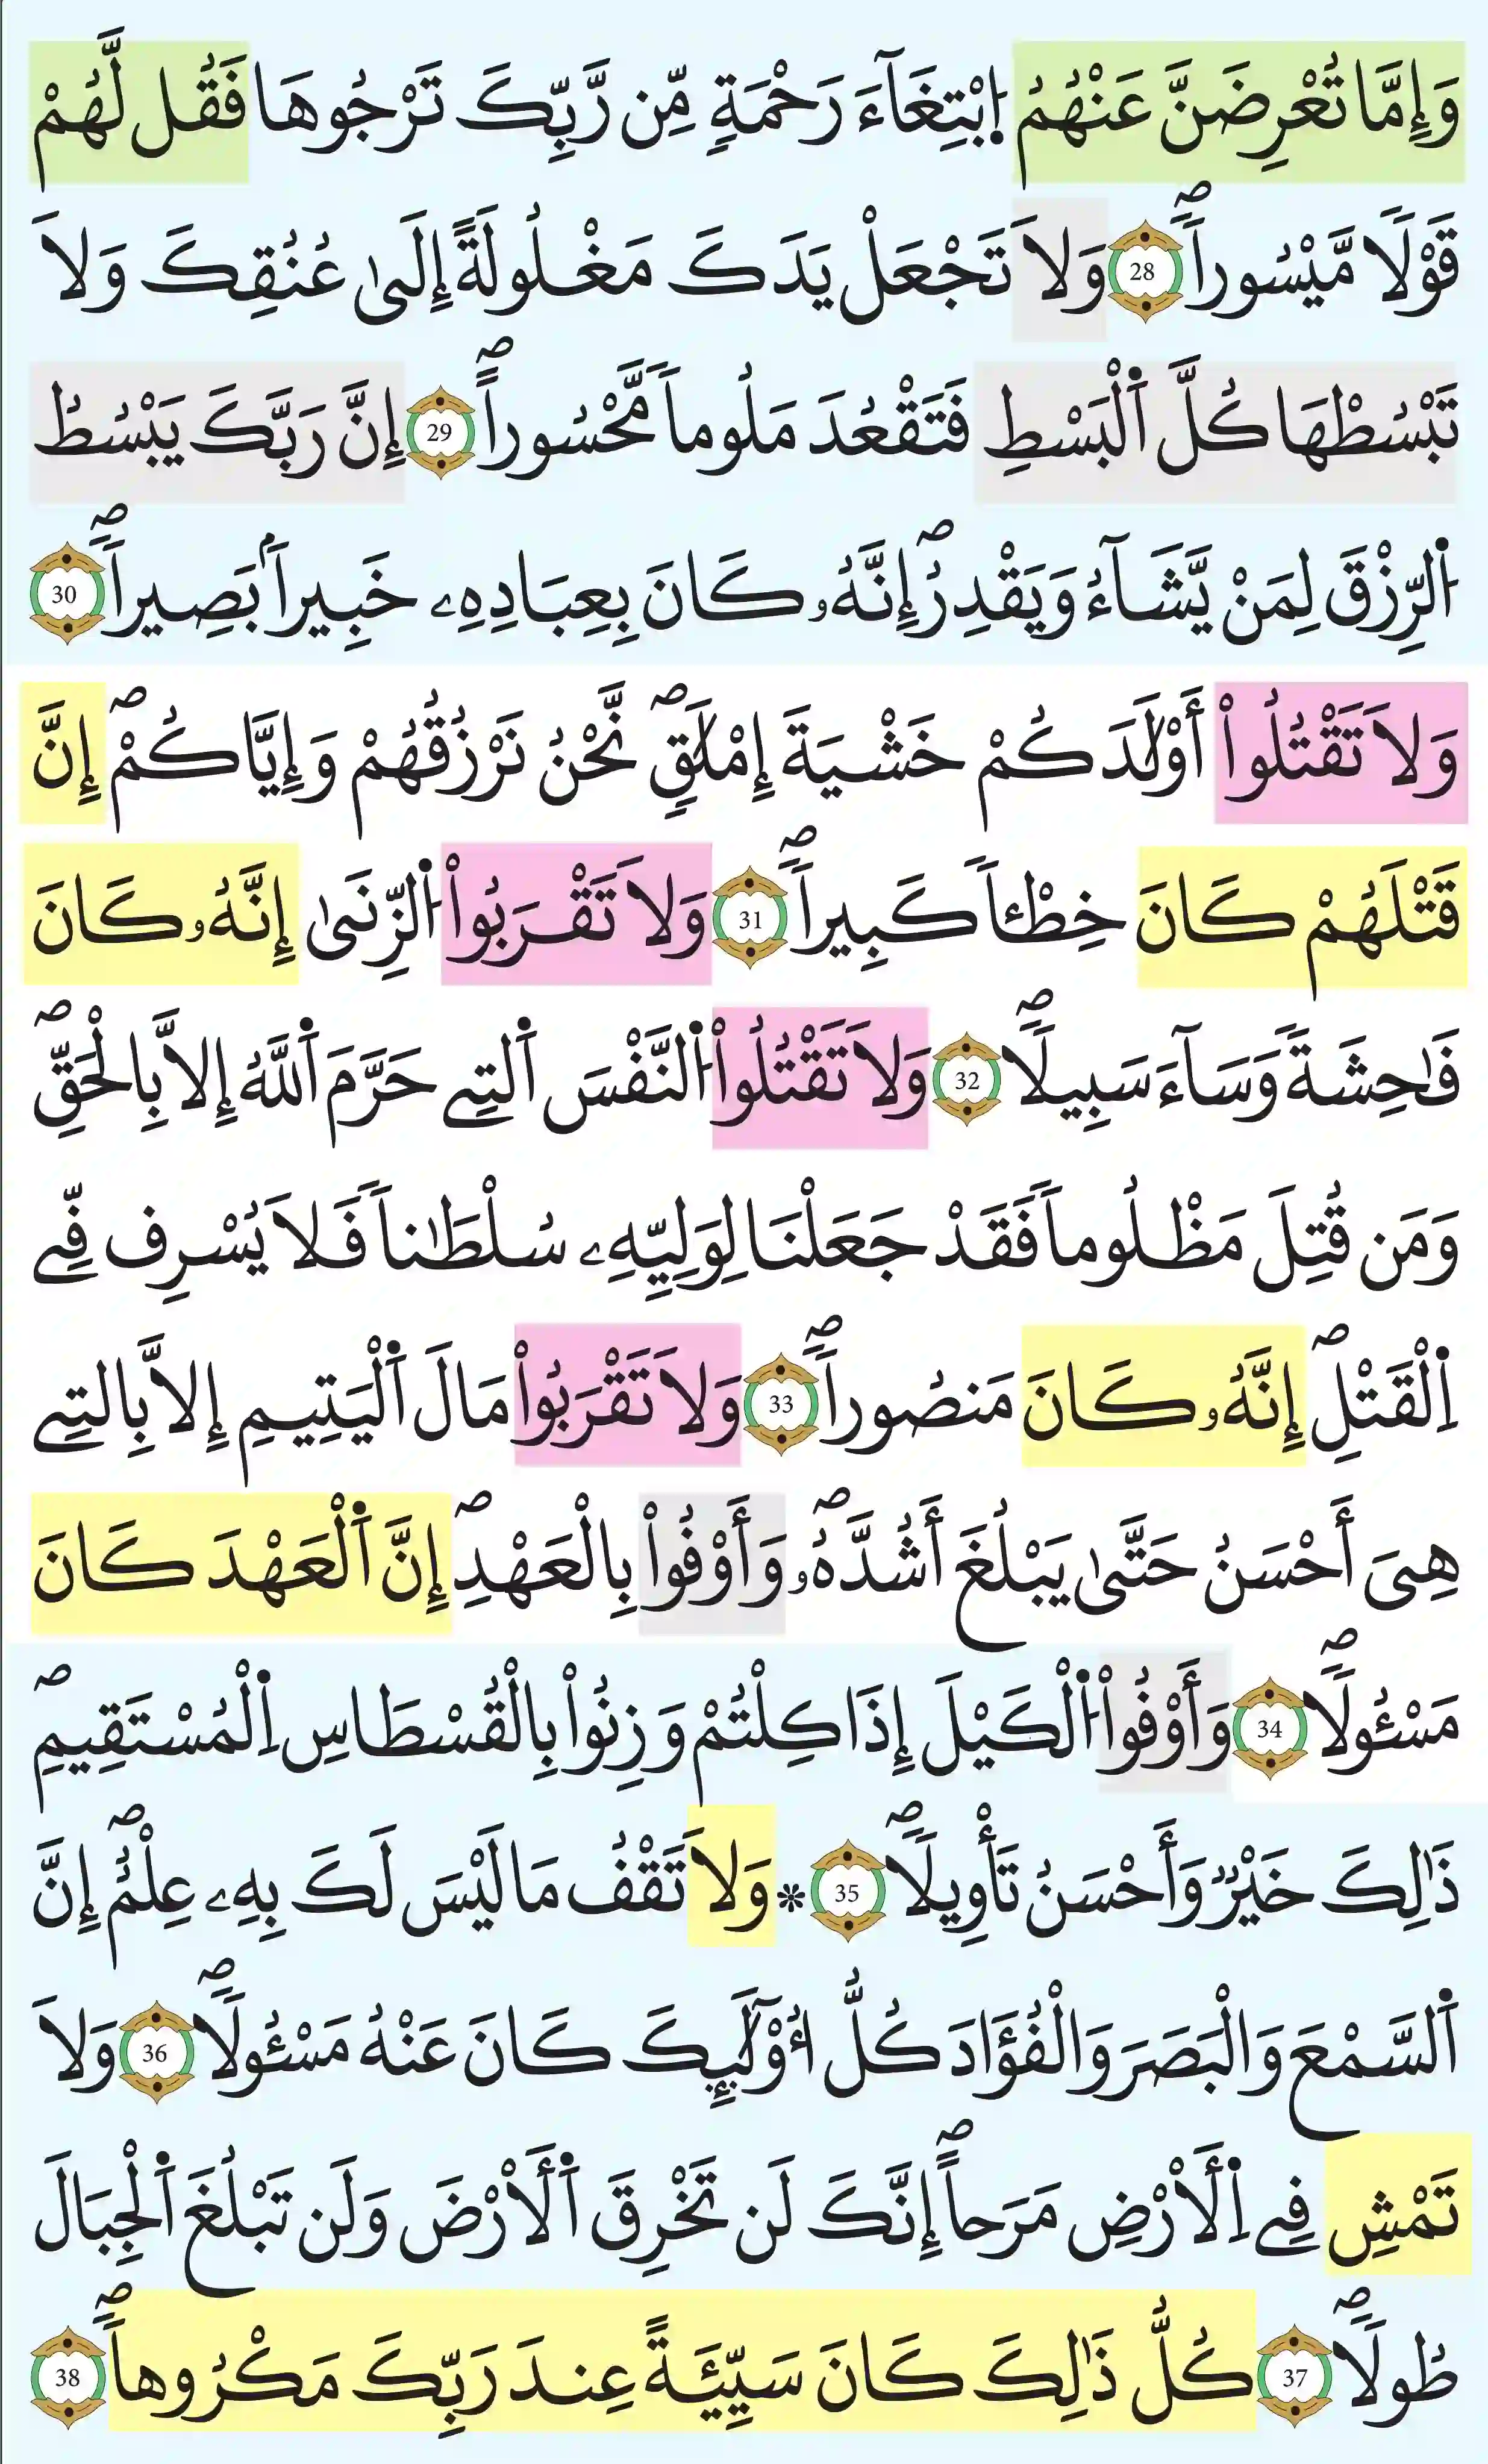 وَإِمَّا تُعْرِضَنَّ عَنْهُمُ اُ۪بْتِغَآءَ رَحْمَةٍ مِّن رَّبِّكَ تَرْجُوهَا فَقُل لَّهُمْ
قَوْلاً مَّيْسُوراًۖ 28 وَلَا تَجْعَلْ يَدَكَ مَغْلُولَةً إِلَىٰ عُنُقِكَ وَلَا
تَبْسُطْهَا كُلَّ اَ۬لْبَسْطِ فَتَقْعُدَ مَلُوماً مَّحْسُوراًۖ 29 إِنَّ رَبَّكَ يَبْسُطُ
اُ۬لرِّزْقَ لِمَنْ يَّشَآءُ وَيَقْدِرُۖ إِنَّهُۥ كَانَ بِعِبَادِهِۦ خَبِيراَۢ بَصِيراًۖ 30
وَلَا تَقْتُلُواْ أَوْلَٰدَكُمْ خَشْيَةَ إِمْلَٰقٖۖ نَّحْنُ نَرْزُقُهُمْ وَإِيَّاكُمْۖ إِنَّ
قَتْلَهُمْ كَانَ خِطْـٔاً كَبِيراًۖ 31 وَلَا تَقْرَبُواْ اُ۬لزِّنَىٰ إِنَّهُۥ كَانَ
فَٰحِشَةً وَسَآءَ سَبِيلاًۖ 32 وَلَا تَقْتُلُواْ اُ۬لنَّفْسَ اَ۬لتِے حَرَّمَ اَ۬للَّهُ إِلَّا بِالْحَقِّۖ
وَمَن قُتِلَ مَظْلُوماً فَقَدْ جَعَلْنَا لِوَلِيِّهِۦ سُلْطَٰناً فَلَا يُسْرِف فِّے
اِ۬لْقَتْلِۖ إِنَّهُۥ كَانَ مَنصُوراًۖ 33 وَلَا تَقْرَبُواْ مَالَ اَ۬لْيَتِيمِ إِلَّا بِالتِے
هِيَ أَحْسَنُ حَتَّىٰ يَبْلُغَ أَشُدَّهُۥۖ وَأَوْفُواْ بِالْعَهْدِۖ إِنَّ اَ۬لْعَهْدَ كَانَ
مَسْـُٔولاًۖ 34 وَأَوْفُواْ اُ۬لْكَيْلَ إِذَا كِلْتُمْ وَزِنُواْ بِالْقُسْطَاسِ اِ۬لْمُسْتَقِيمِۖ
ذَٰلِكَ خَيْرٌ وَأَحْسَنُ تَأْوِيلاًۖ 35 * وَلَا تَقْفُ مَا لَيْسَ لَكَ بِهِۦ عِلْمٌۖ إِنَّ
اَ۬لسَّمْعَ وَالْبَصَرَ وَالْفُؤَادَ كُلُّ أُوْلَٰٓئِكَ كَانَ عَنْهُ مَسْـُٔولاًۖ 36 وَلَا
تَمْشِ فِے اِ۬لَارْضِ مَرَحاًۖ إِنَّكَ لَن تَخْرِقَ اَ۬لَارْضَ وَلَن تَبْلُغَ اَ۬لْجِبَالَ
طُولاًۖ 37 كُلُّ ذَٰلِكَ كَانَ سَيِّئَةً عِندَ رَبِّكَ مَكْرُوهاًۖ 38